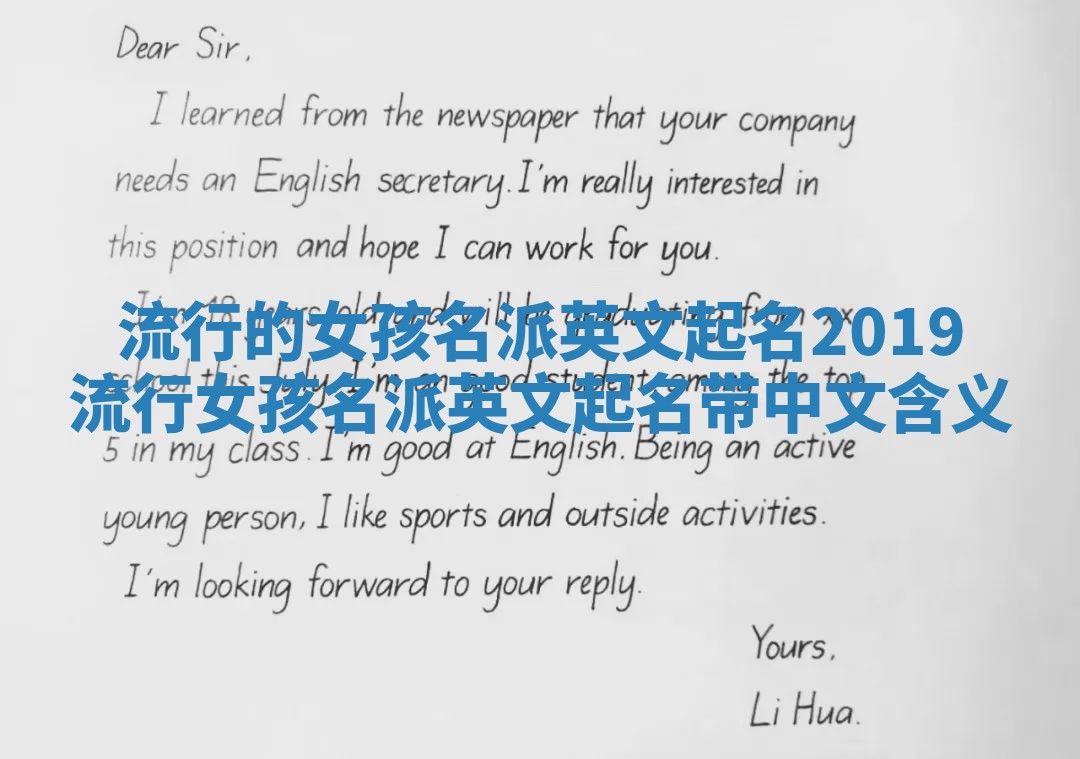 Dear Sir,
I learned from the newspaper that your company
needs an English secretary. I'm really interested in
this position and hope I can work for you.
I'm 18 years old and will be graduating from xx
流行的女孩名派英文起名2019
school this July. I'm an good student among the top
流行女孩名派英文起名带中文含义
5 in my class. I'm good at English. Being an active
young person, I like sports and outside activities.
I'm looking forward to your reply.
Yours,
Li Hua.